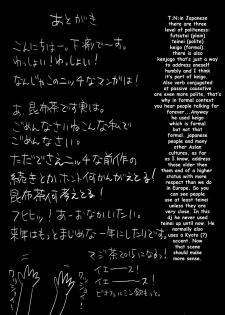 あとがき
こんにちはー。下郝でーす。
わっしょい！わっしょい！
なんじゃこのニッチなマンガは！
あ、昆布茶です実は。
ごめんなさいねこんな私で
ごめんなさい。
ただでさえニッチな前作の
続きとかホント何かんがえてる！
昆布茶何考えてる！
フヒヒッ！あーおなかしたい。
来年はもっとまじめな一年にしたいです。
イエーース！
イエーース！
T.N:in Japanese
there are three
level of politeness:
futsutai (plain)
teinei (polite)
keigo (formal).
there is also
kenjogo that's used
to address oneself
humbly and I think
it's part of keigo.
Also verb conjugated
at passive causative
are even more polite, that's
why in formal context
you hear people talking for
forever...Anyway
he used keigo
which is formal
but not that
formal. japanese
people and many
other Asian
cultures, as far
as I know, address
those older then
them and of a higher
status with more
respect than we do
in Europe. So you
can see people
use at least teinei
unless they are very
close. In this
dj he never used
teinei up until now. He
normally also
uses a Kyoto (?)
accent. Now that
scene should
make more sense.